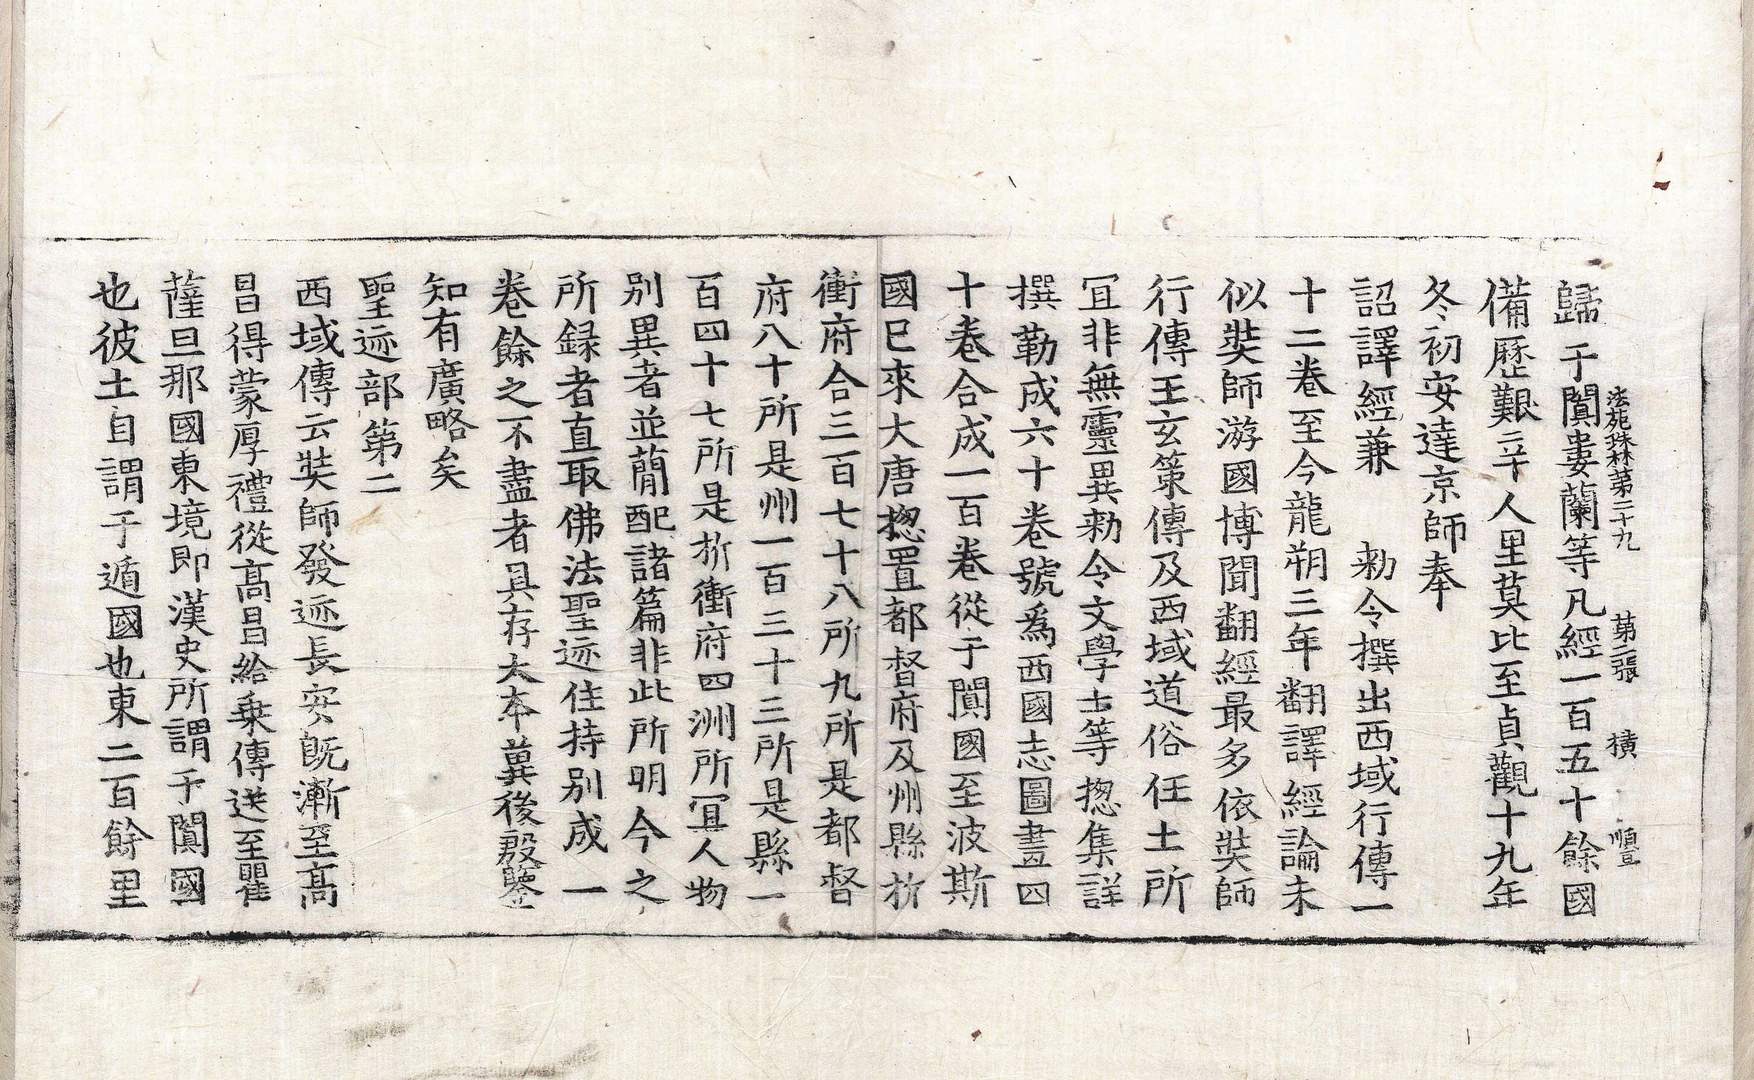 法苑珠林第二十九　第二張　橫　順宣
歸于闐婁蘭等凡經一百五十餘國
備歷艱辛人里莫比至貞觀十九年
冬初安達京師奉
詔譯經兼　勑令撰出西域行傳一
十二卷至今龍朔三年翻譯經論未
似奘師游國博聞翻經最多依奘師
行傳王玄策傳及西域道俗任土所
冝非無靈異勑令文學士等揔集詳
撰勒成六十卷號爲西國志圖畫四
十卷合成一百卷從于闐國至波斯
國已來大唐揔置都督府及州縣折
衝府合三百七十八所九所是都督
府八十所是州一百三十三所是縣一
百四十七所是折衝府四洲所冝人物
別異者並蕳配諸篇非此所明今之
所録者直取佛法聖迹住持別成一
卷餘之不盡者具存大本兾後殷鑒
知有廣略矣
聖迹部第二
西域傳云奘師發迹長安旣漸至高
昌得蒙厚禮從高昌給乗傳送至瞿
薩旦那國東境即漢史所謂于闐國
也彼土自謂于遁國也東二百餘里